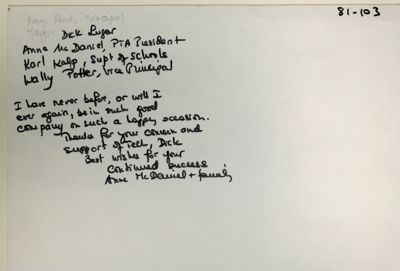 81-103
Ray Reed, Principal
Mayor Dick Lugar
Anne McDaniel, PTA President
Karl Kalp, Supt of Schools
Wally Potter, Vice Principal
I have never before, or will I
ever again, be in such good
company on such a happy occasion.
Thanks for your concern and
support of Tech, Dick
Best wishes for your
Continued success
Anne McDaniel + family